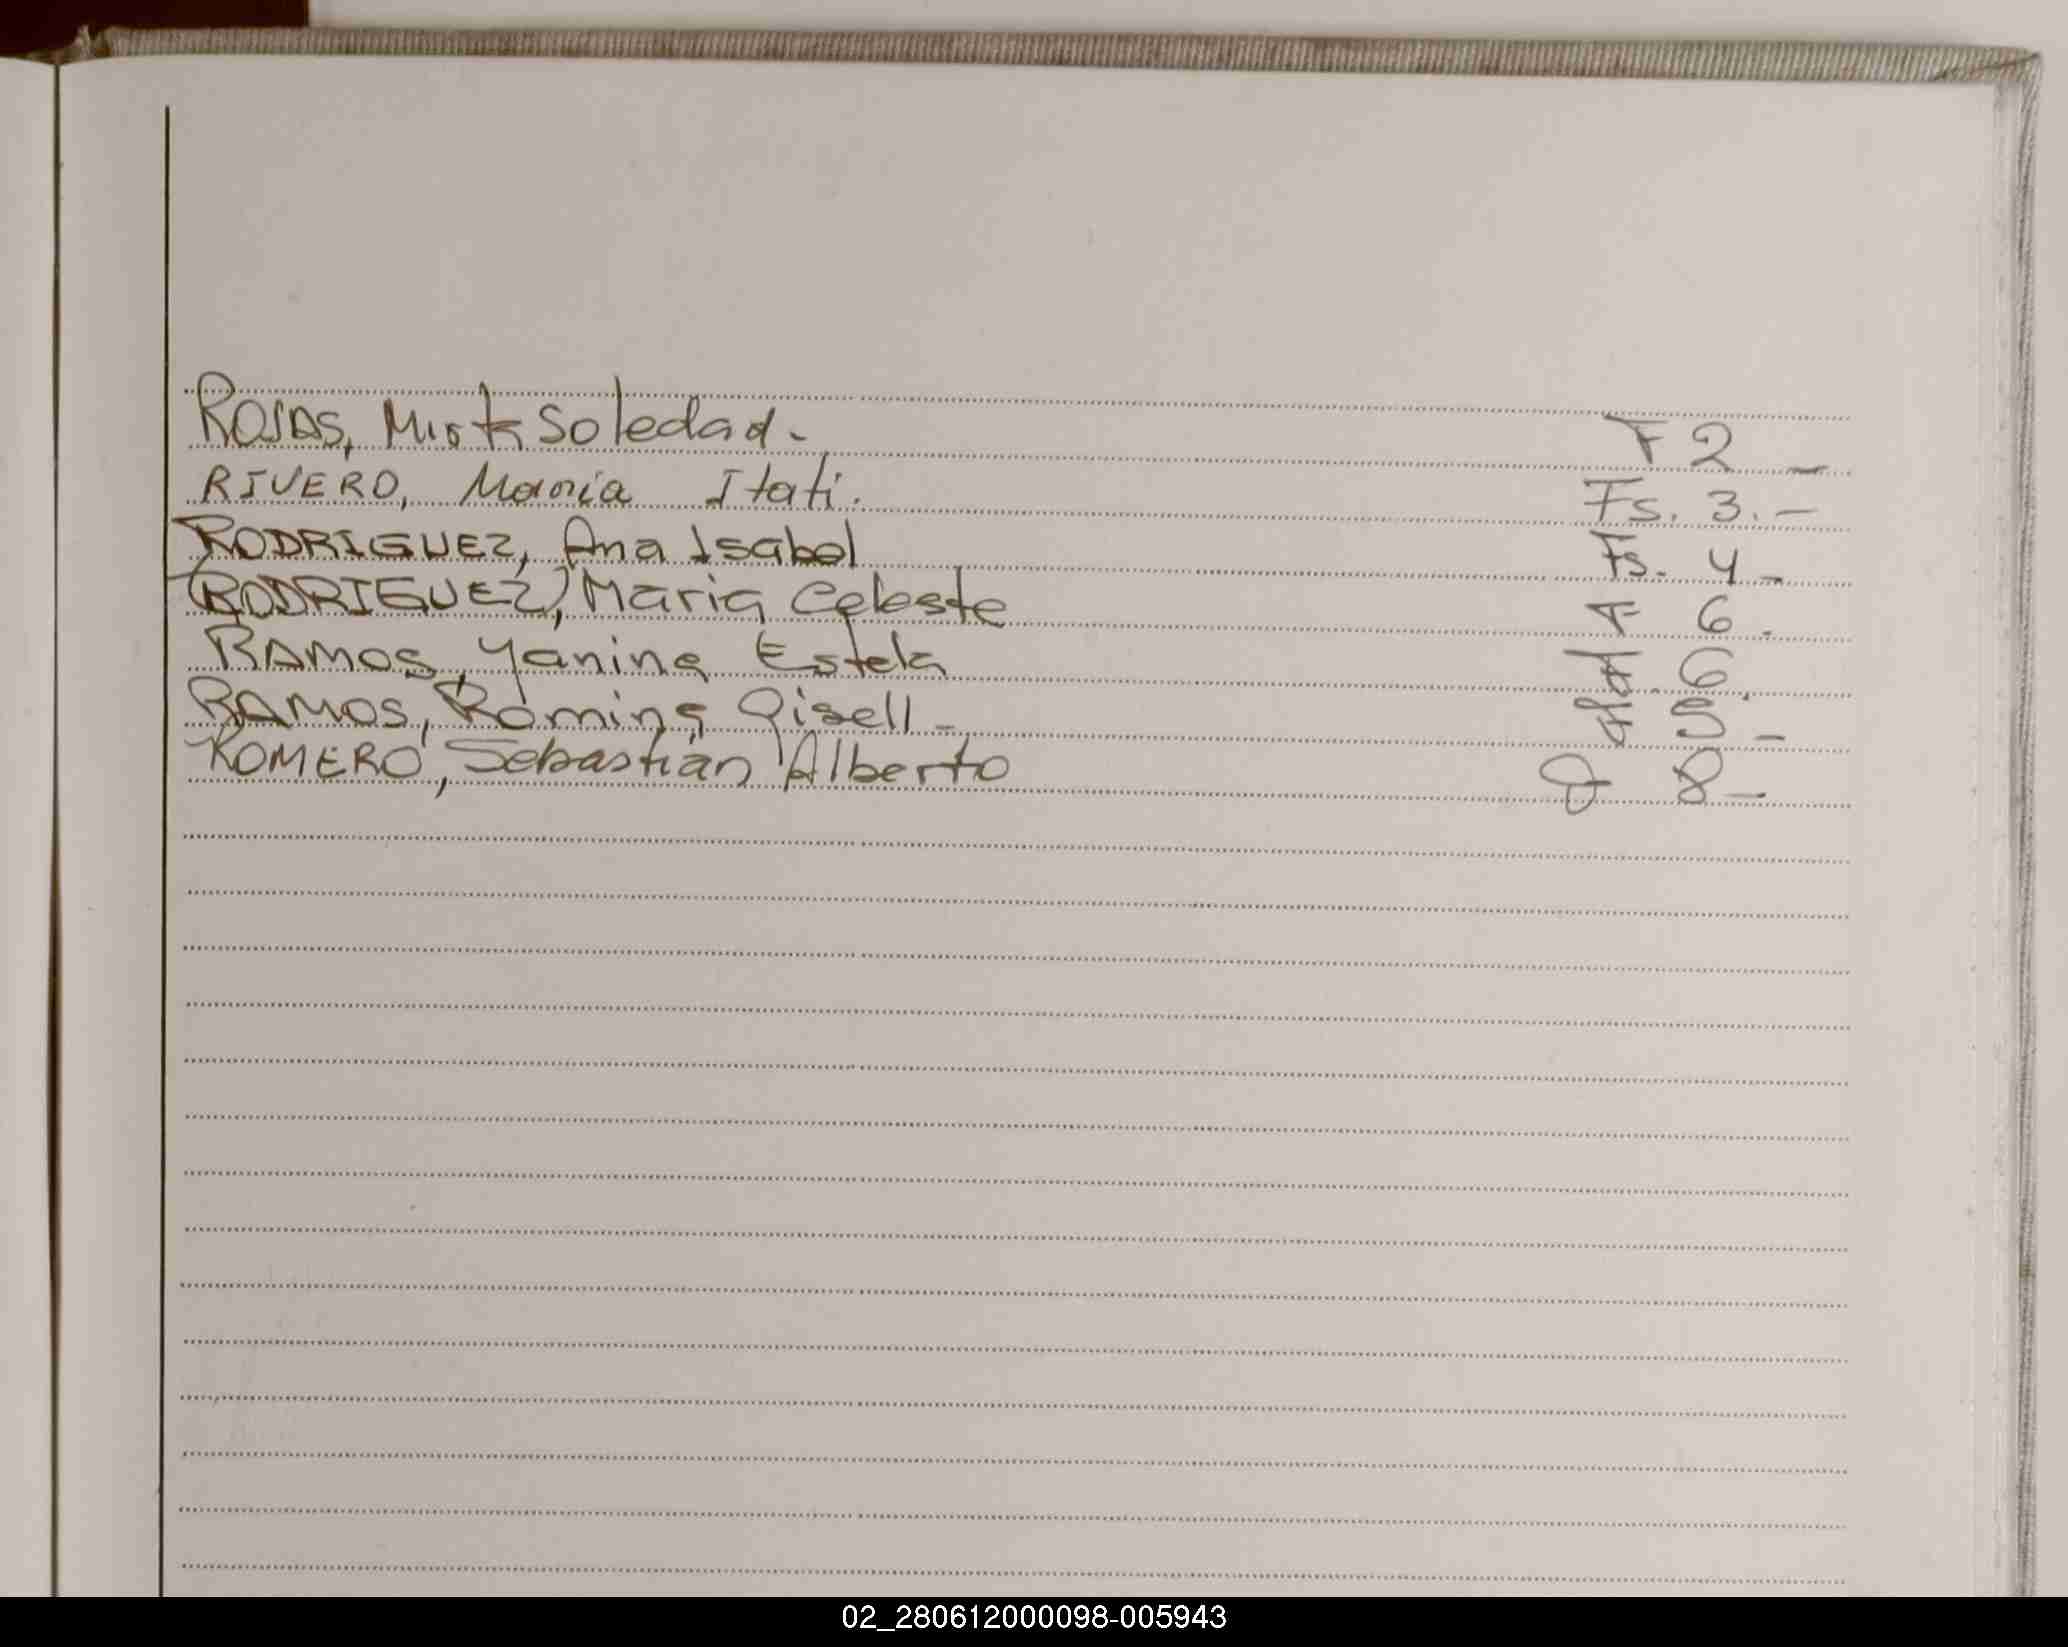 ROJAS, Mirta Soledad.- F 2 -
RIVERO, Maria Itati. Fs. 3. -
RODRIGUEZ, Ana Isabel Fs. 4 -
RODRIGUEZ, Maria Celeste F 6.
RAMOS, Yanina Estela 6.
RAMOS, Romina Gisell -
ROMERO, Sebastián Alberto 8 -
02_280612000098-005943